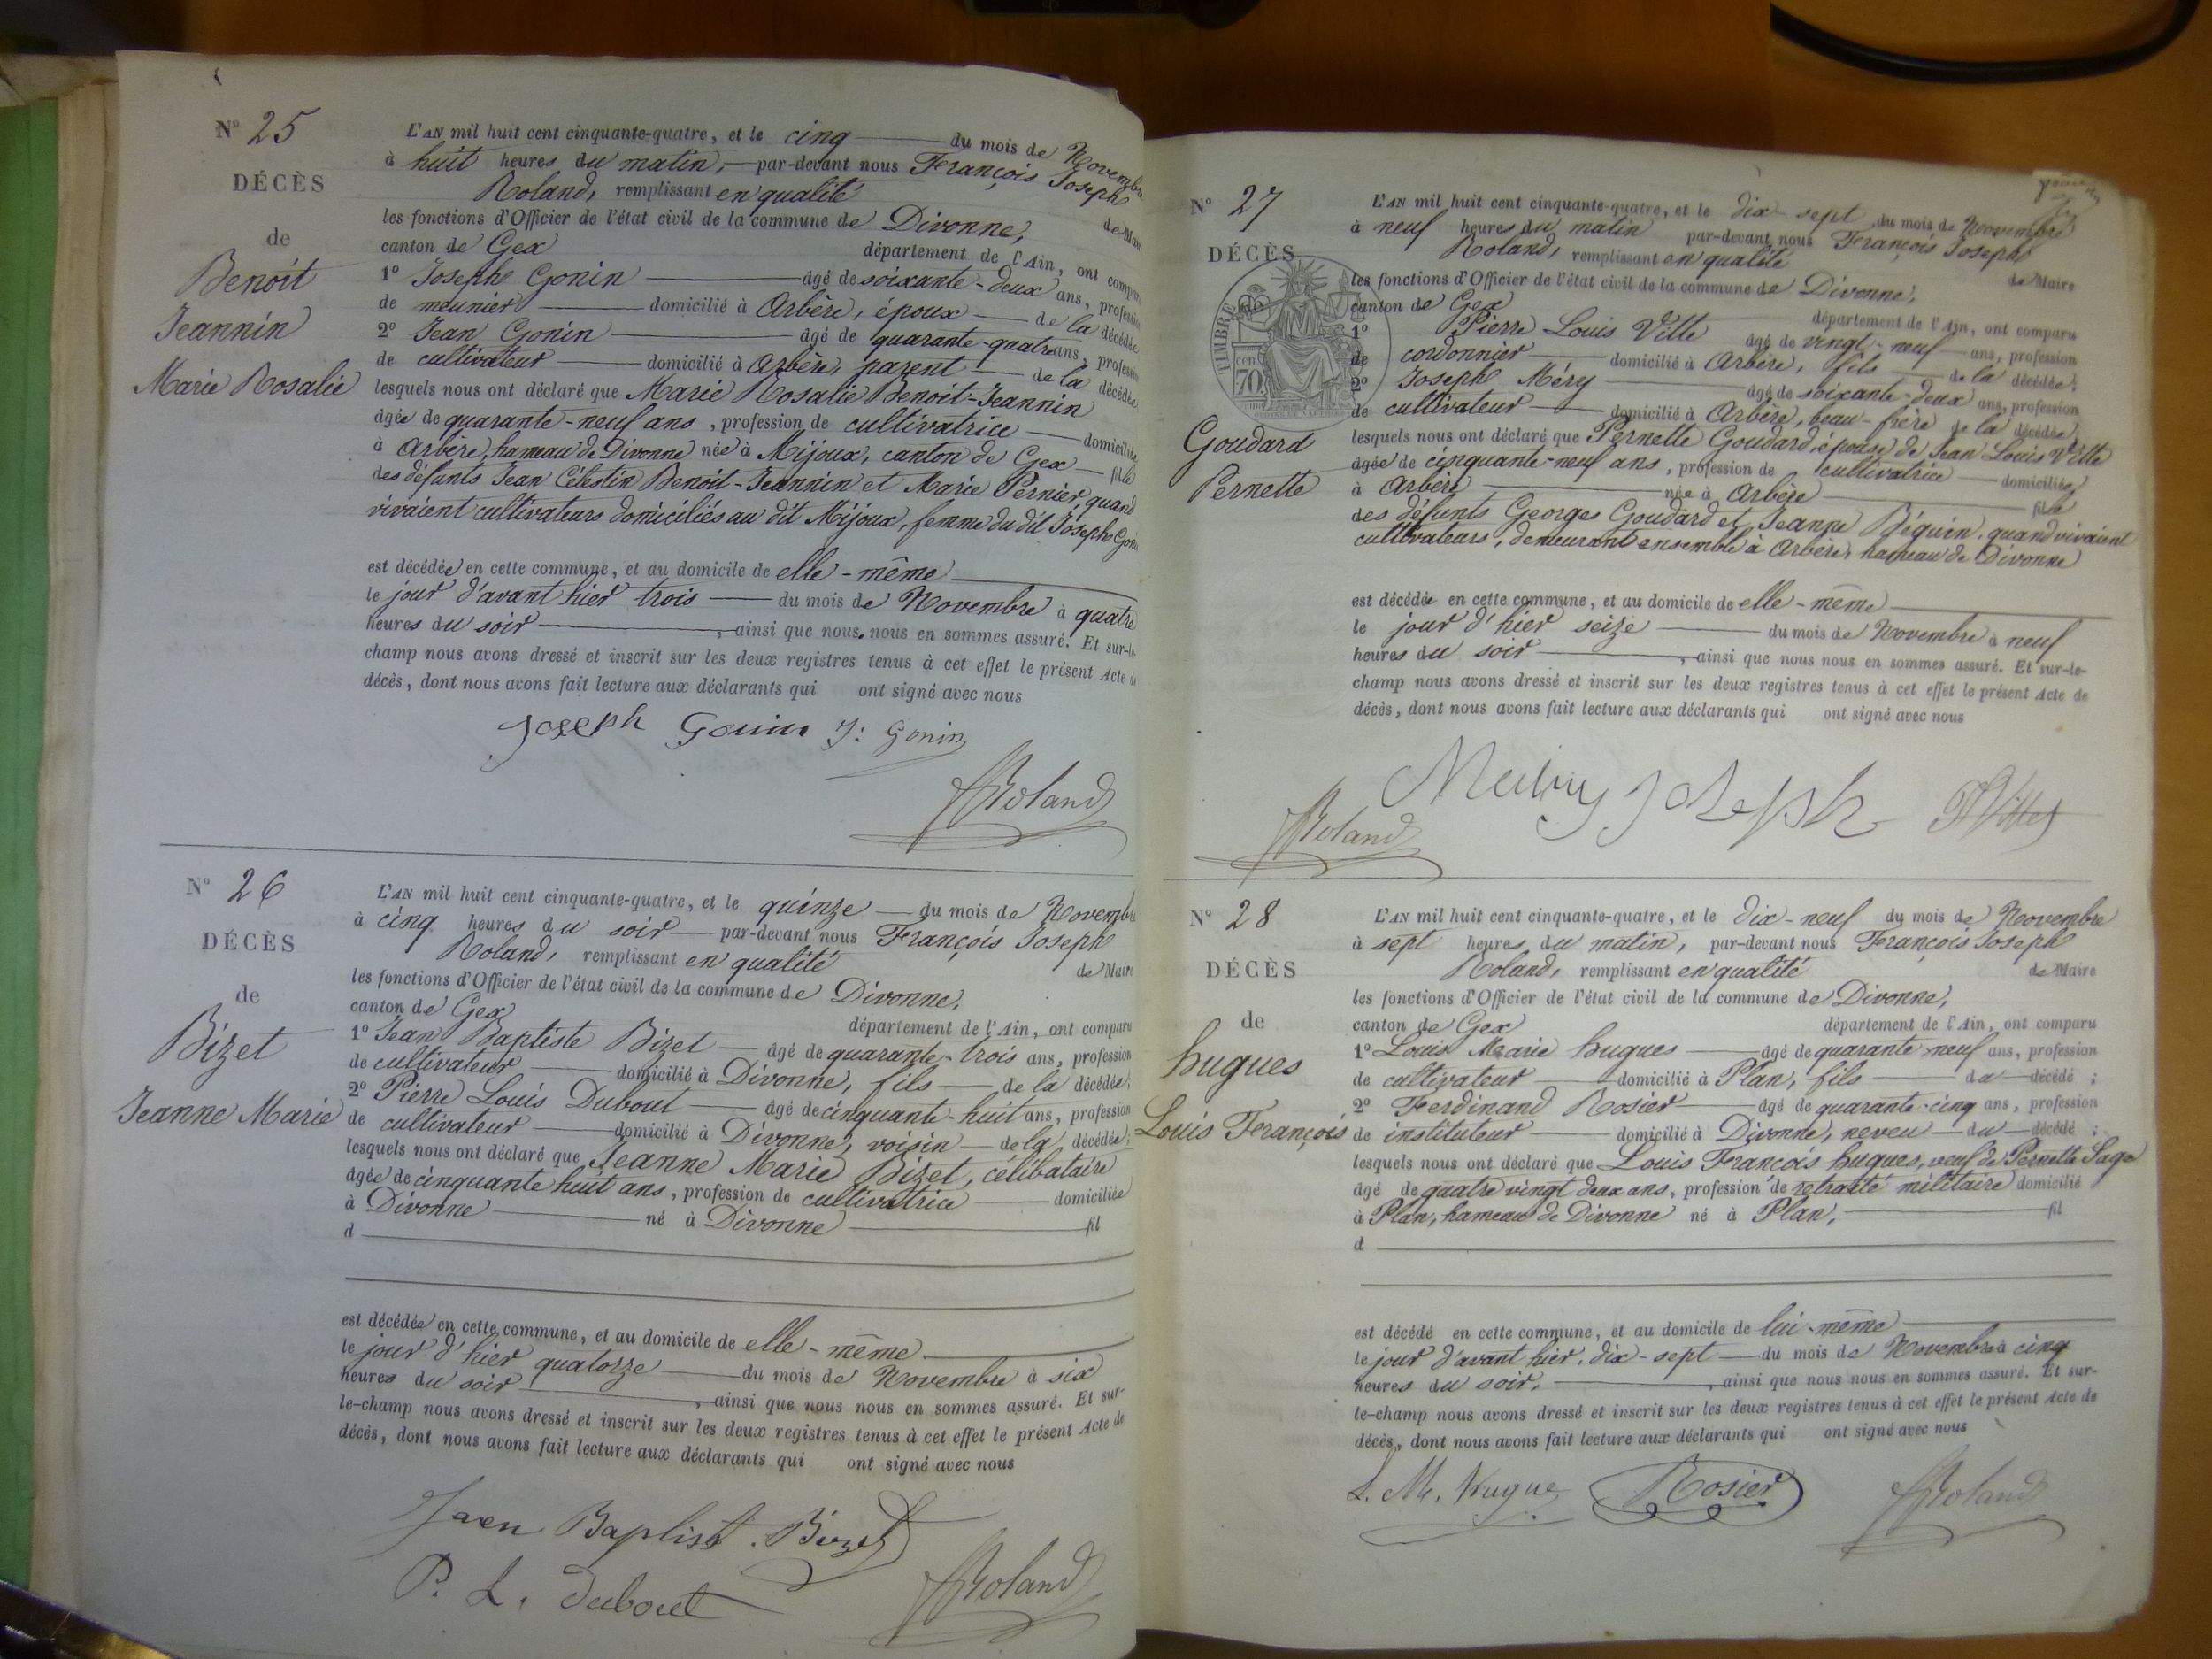 N° 25
DÉCÈS
de
Benoit
Jeannin
Marie Rosalie
L'AN mil huit cent cinquante-quatre, et le cinq du mois de Novembre
à huit heures du matin, par-devant nous François Joseph
Roland, remplissant en qualité de Maire
les fonctions d'Officier de l'état civil de la commune de Divonne,
canton de Gex département de l'Ain, ont compar
1° Joseph Gonin âgé de soixante-deux ans, profession
de meunier domicilié à Arbère, époux de la décédée
2° Jean Gonin âgé de quarante-quatre ans, profession
de cultivateur domicilié à Arbère, parent de la décédée
lesquels nous ont déclaré que Marie Rosalie Benoit-Jeannin
âgée de quarante-neuf ans, profession de cultivatrice domiciliée
à Arbère, hameau de Divonne née à Mijoux, canton de Gex fille
des défunts Jean Célestin Benoit-Jeannin et Marie Pernier, quand
vivaient cultivateurs domiciliés au dit Mijoux, femme du dit Joseph Gonin
est décédée en cette commune, et au domicile de elle-même
le jour d'avant hier trois du mois de Novembre à quatre
heures du soir, ainsi que nous nous en sommes assuré. Et sur-le-
champ nous avons dressé et inscrit sur les deux registres tenus à cet effet le présent Acte de
décès, dont nous avons fait lecture aux déclarants qui ont signé avec nous
Joseph Gonin J: Gonin
Roland
N° 26
DÉCÈS
de
Bizet
Jeanne Marie
L'AN mil huit cent cinquante-quatre, et le quinze du mois de Novembre
à cinq heures du soir par-devant nous François Joseph
Roland, remplissant en qualité de Maire
les fonctions d'Officier de l'état civil de la commune de Divonne,
canton de Gex département de l'Ain, ont comparu
1° Jean Baptiste Bizet âgé de quarante-trois ans, profession
de cultivateur domicilié à Divonne, fils de la décédée;
2° Pierre Louis Dubout âgé de cinquante-huit ans, profession
de cultivateur domicilié à Divonne, voisin de la décédée;
lesquels nous ont déclaré que Jeanne Marie Bizet, célibataire
âgée de cinquante huit ans, profession de cultivatrice domiciliée
à Divonne né à Divonne fil
d
est décédée en cette commune, et au domicile de elle-même
le jour d'hier quatorze du mois de Novembre à six
heures du soir, ainsi que nous nous en sommes assuré. Et sur-
le-champ nous avons dressé et inscrit sur les deux registres tenus à cet effet le présent Acte de
décès, dont nous avons fait lecture aux déclarants qui ont signé avec nous
Jaen Baptist. Bizet
P. L. Dubout
Roland
N° 27
DÉCÈS
de
TIMBRE
70 cen
Goudard
Pernette
L'AN mil huit cent cinquante-quatre, et le dix-sept du mois de Novembre
à neuf heures du matin par-devant nous François Joseph
Roland, remplissant en qualité de Maire
les fonctions d'Officier de l'état civil de la commune de Divonne,
canton de Gex département de l'Ain, ont comparu
1° Pierre Louis Ville âgé de vingt-neuf ans, profession
de cordonnier domicilié à Arbère, fils de la décédée;
2° Joseph Méry âgé de soixante-deux ans, profession
de cultivateur domicilié à Arbère, beau-frère de la décédée;
lesquels nous ont déclaré que Pernette Goudard, épouse de Jean Louis Ville
âgée de cinquante-neuf ans, profession de cultivatrice domiciliée
à Arbère née à Arbère fille
des défunts Georges Goudard et Jeanne Béguin, quand vivaient
cultivateurs, demeurant ensemble à Arbère, hameau de Divonne
est décédée en cette commune, et au domicile de elle-même
le jour d'hier seize du mois de Novembre à neuf
heures du soir, ainsi que nous nous en sommes assuré. Et sur-le-
champ nous avons dressé et inscrit sur les deux registres tenus à cet effet le présent Acte de
décès, dont nous avons fait lecture aux déclarants qui ont signé avec nous
Joseph
Roland
N° 28
DÉCÈS
de
hugues
Louis François
L'AN mil huit cent cinquante-quatre, et le dix-neuf du mois de Novembre
à sept heures du matin, par-devant nous François Joseph
Roland, remplissant en qualité de Maire
les fonctions d'Officier de l'état civil de la commune de Divonne,
canton de Gex département de l'Ain, ont comparu
1° Louis Marie hugues âgé de quarante-neuf ans, profession
de cultivateur domicilié à Plan, fils du décédé;
2° Ferdinand Rosier âgé de quarante-cinq ans, profession
de instituteur domicilié à Divonne, neveu du décédé;
lesquels nous ont déclaré que Louis François hugues, veuf de Pernette Sage
âgé de quatre vingt deux ans, profession de retraité militaire domicilié
à Plan, hameau de Divonne né à Plan, fil
d
est décédé en cette commune, et au domicile de lui-même
le jour d'avant hier, dix-sept du mois de Novembre à cinq
heures du soir, ainsi que nous nous en sommes assuré. Et sur-
le-champ nous avons dressé et inscrit sur les deux registres tenus à cet effet le présent Acte de
décès, dont nous avons fait lecture aux déclarants qui ont signé avec nous
L. M. hugue Rosier Roland